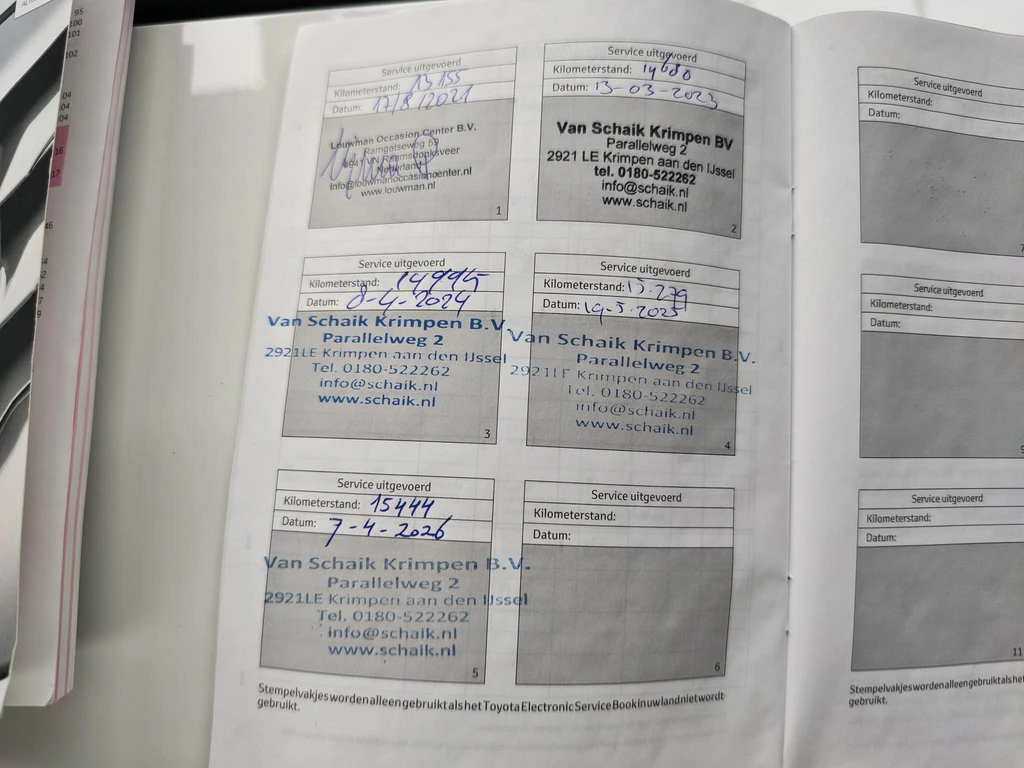 95
100
101
102
04
04
04
16
17
46
Service uitgevoerd
Kilometerstand: 13155
Datum: 17/8/2021
Louwman Occasion Center B.V.
Ramgatseweg
Raamsdonksveer
Nederland
info@louwmanoccasioncenter.nl
www.louwman.nl
1
Service uitgevoerd
Kilometerstand: 14680
Datum: 13-03-2023
Van Schaik Krimpen BV
Parallelweg 2
2921 LE Krimpen aan den IJssel
tel. 0180-522262
info@schaik.nl
www.schaik.nl
2
Service uitgevoerd
Kilometerstand: 14994
Datum: 8-4-2024
Van Schaik Krimpen B.V.
Parallelweg 2
2921LE Krimpen aan den IJssel
Tel. 0180-522262
info@schaik.nl
www.schaik.nl
3
Service uitgevoerd
Kilometerstand: 15.279
Datum: 19-5-2025
Van Schaik Krimpen B.V.
Parallelweg 2
2921LE Krimpen aan den IJssel
Tel. 0180-522262
info@schaik.nl
www.schaik.nl
4
Service uitgevoerd
Kilometerstand: 15444
Datum: 7-4-2026
Van Schaik Krimpen B.V.
Parallelweg 2
2921LE Krimpen aan den IJssel
Tel. 0180-522262
info@schaik.nl
www.schaik.nl
5
Service uitgevoerd
Kilometerstand:
Datum:
6
Stempelvakjes worden alleen gebruikt als het Toyota Electronic Service Book in uw land niet wordt
gebruikt.
Service uitgevoerd
Kilometerstand:
Datum:
7
Service uitgevoerd
Kilometerstand:
Datum:
9
Service uitgevoerd
Kilometerstand:
Datum:
11
Stempelvakjes worden alleen gebruikt als het
gebruikt.